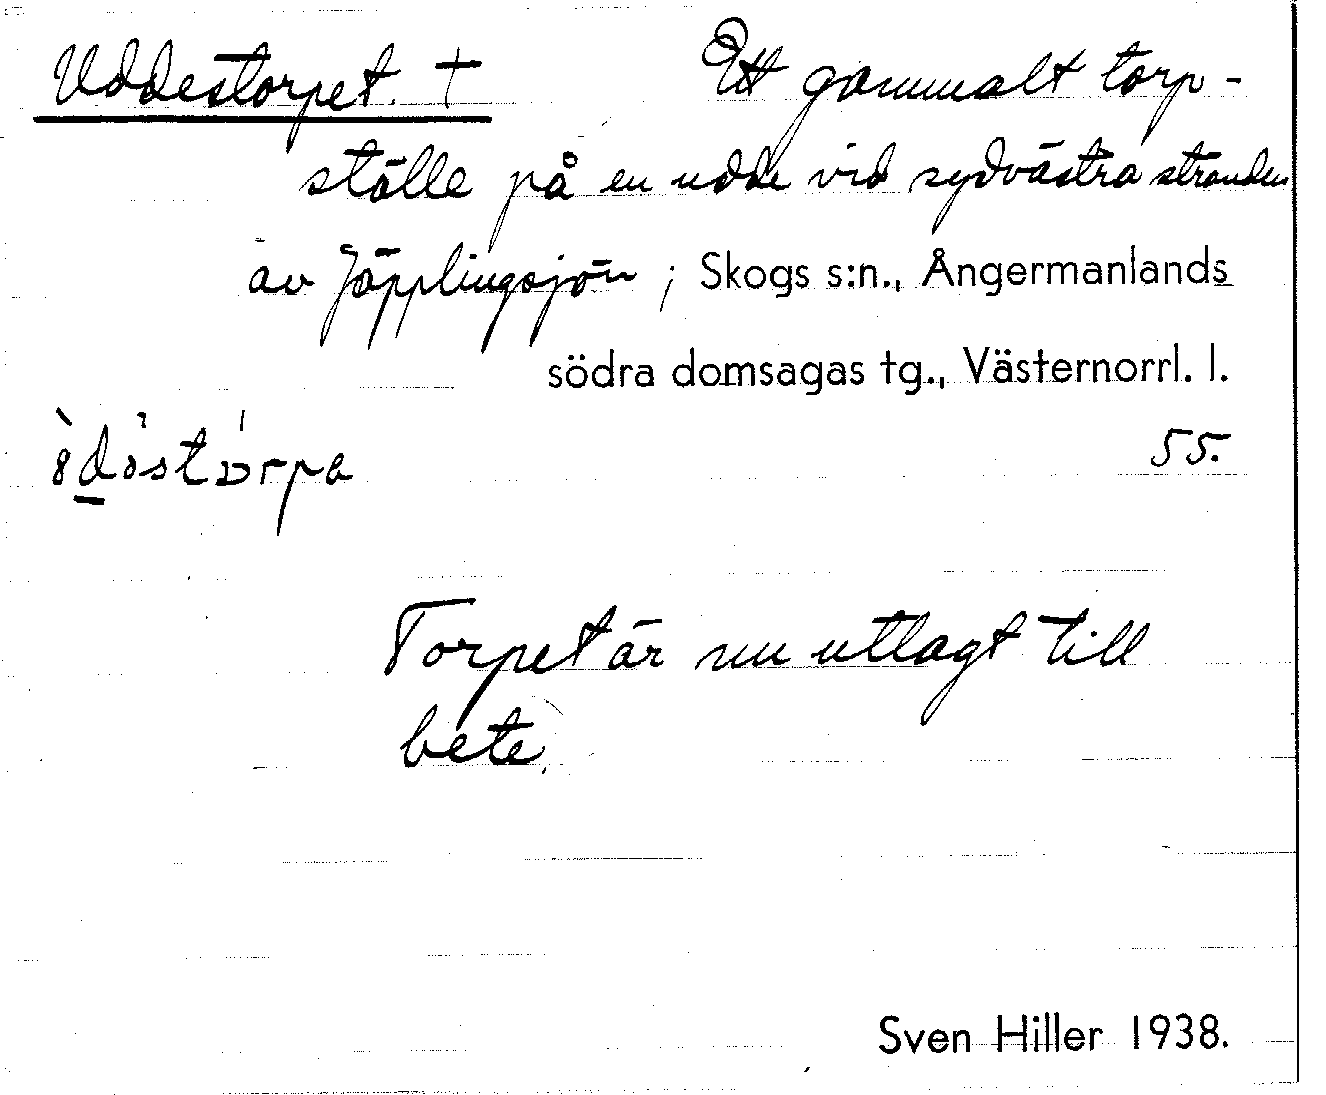 Uddestorpet. † Ett gammalt torp-
ställe på en udde vid sydvästra stranden
av Jäpplingsjön ; Skogs s:n., Ångermanlands
södra domsagas tg., Västernorrl. l.
55.
Torpet är nu utlagt till
bete.
Sven Hiller 1938.